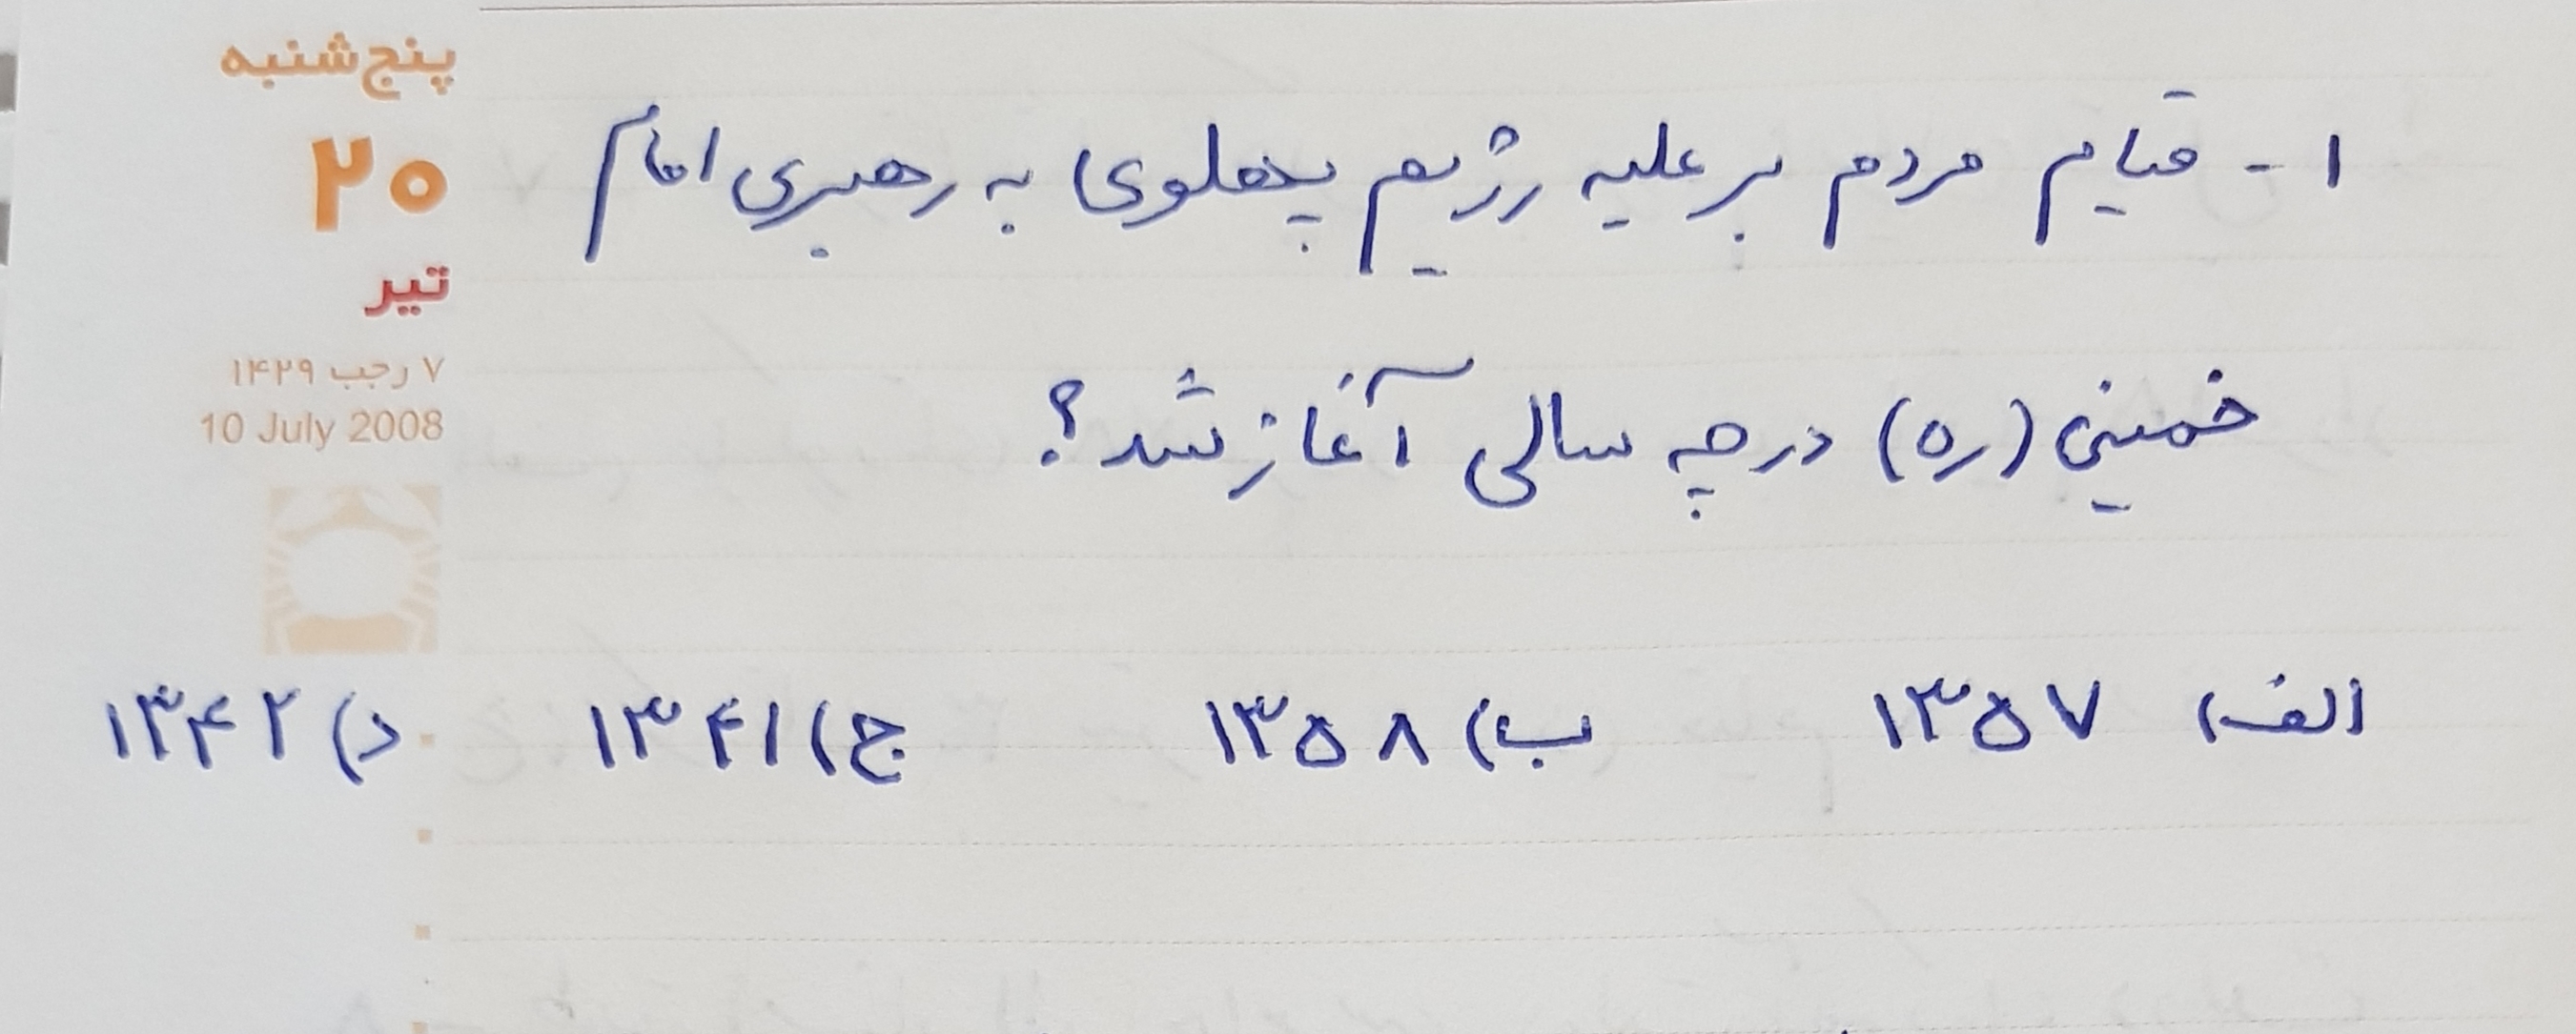 پنج‌شنبه
۲۰
تیر
۷ رجب ۱۴۲۹
10 July 2008
۱- قیام مردم بر علیه رژیم پهلوی به رهبری امام
خمینی (ره) در چه سالی آغاز شد؟
الف) ۱۳۵۷ ب) ۱۳۵۸ ج) ۱۳۴۱ د) ۱۳۴۲